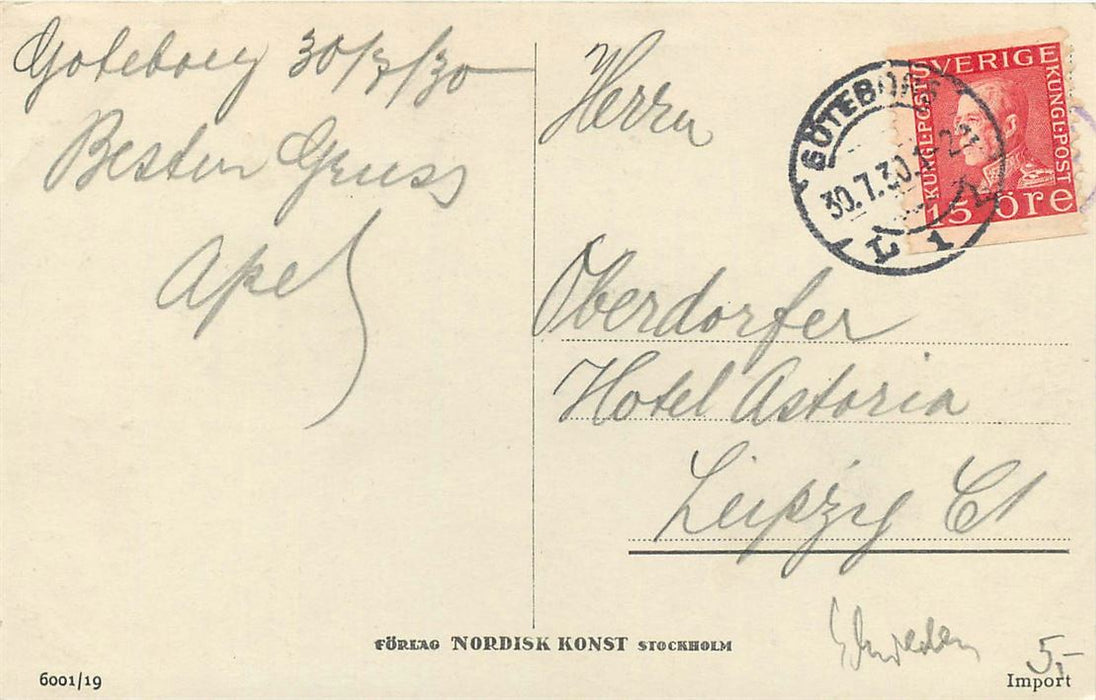 Goteborg 30/7/30
Besten Gruss
Apel
Herrn
Oberdorfer
Hotel Astoria
Leipzig C1
SVERIGE
KUNGL·POST
KUNGL·POST
15 öre
GÖTEBORG
30.7.30.
L 1
FÖRLAG NORDISK KONST STOCKHOLM
6001/19
Schweden
5,-
Import